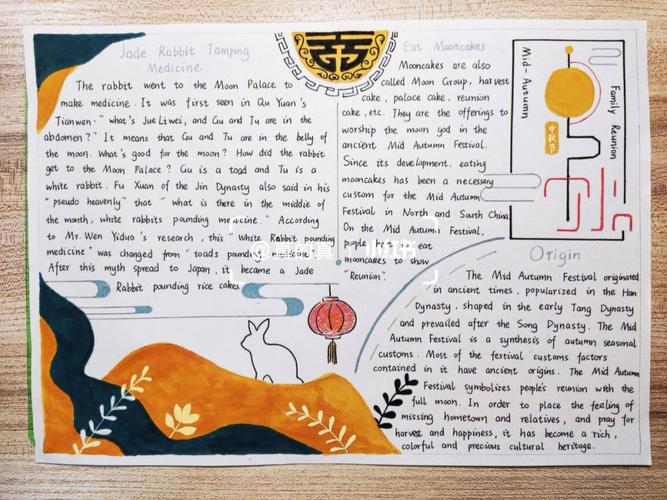 Jade Rabbit Tamping
Medicine
The rabbit went to the Moon Palace to
make medicine. It was first seen in Qu Yuan's
Tianwen." what's Jue Liwei, and Gu and Tu are in the
abdomen?" It means that Gu and Tu are in the belly of
the moon. What's good for the moon? How did the rabbit
get to the Moon Palace? Gu is a toad and Tu is a
white rabbit. Fu Xuan of the Jin Dynasty also said in his
"pseudo heavenly" that "what is there in the middle of
the month, white rabbits pounding medicine." According
to Mr. Wen Yiduo's research, this "White Rabbit pounding
medicine" was changed from "toads pounding
After this myth spread to Japan, it became a Jade
Rabbit pounding rice cakes
Eat Mooncakes
Mooncakes are also
called Moon Group, harvest
cake, palace cake, reunion
cake, etc. They are the offerings to
worship the moon god in the
ancient Mid Autumn Festival.
Since its development, eating
mooncakes has been a necessary
custom for the Mid Autumn
Festival in North and South China
On the Mid Autumn Festival,
people eat
mooncakes to show
"Reunion".
Mid-Autumn
Family Reunion
中秋节
Origin
The Mid Autumn Festival originated
in ancient times, popularized in the Han
Dynasty, shaped in the early Tang Dynasty
and prevailed after the Song Dynasty. The Mid
Autumn Festival is a synthesis of autumn seasonal
customs. Most of the festival customs factors
contained in it have ancient origins. The Mid Autumn
Festival symbolizes people's reunion with the
full moon. In order to place the feeling of
missing hometown and relatives, and pray for
harvest and happiness, it has become a rich,
colorful and precious cultural heritage.